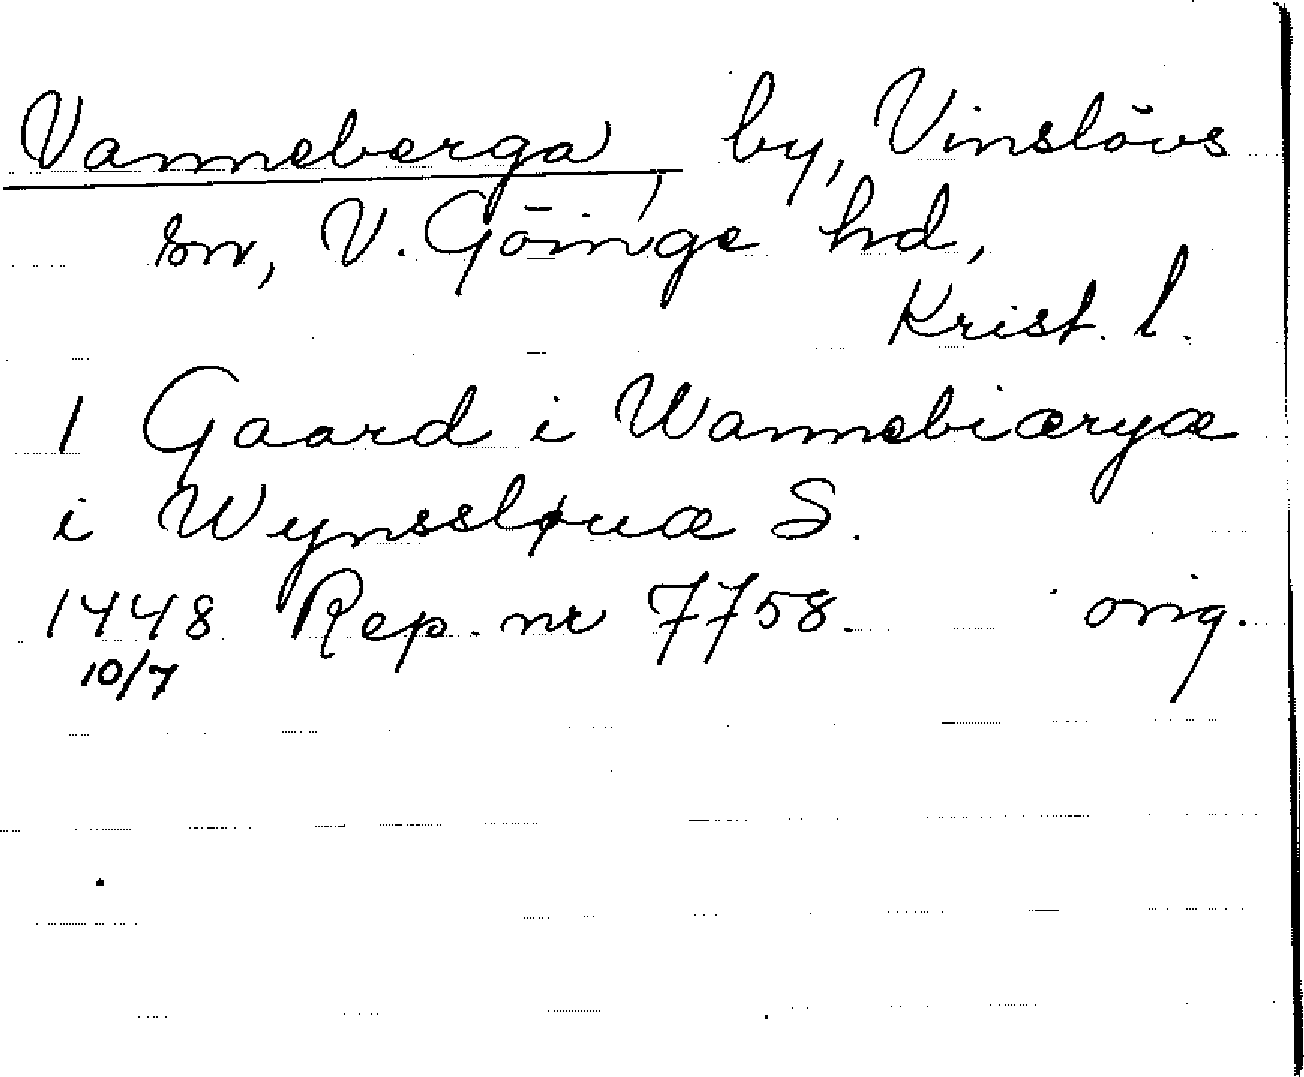 Vanneberga, by, Vinslövs
sn, V. Göinge hd,
Krist. l.
1 Gaard i Wannebiæryæ
i Wynssløuæ S.
1448 Rep. nr 7758. orig.
10/7